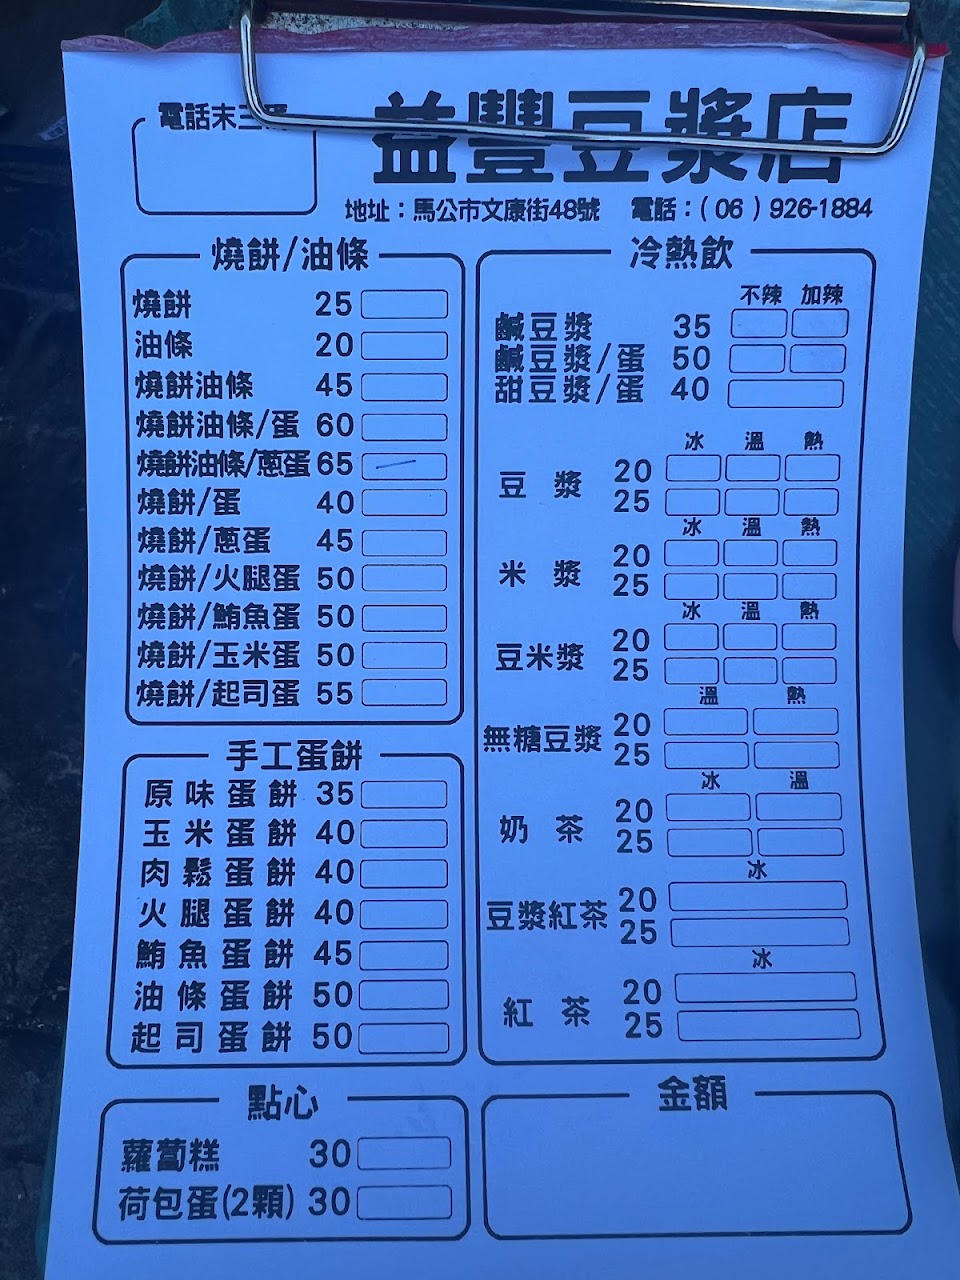 電話末三碼
益豐豆漿店
地址：馬公市文康街48號　電話：(06)926-1884
燒餅/油條
燒餅 25
油條 20
燒餅油條 45
燒餅油條/蛋 60
燒餅油條/蔥蛋 65
燒餅/蛋 40
燒餅/蔥蛋 45
燒餅/火腿蛋 50
燒餅/鮪魚蛋 50
燒餅/玉米蛋 50
燒餅/起司蛋 55
手工蛋餅
原味蛋餅 35
玉米蛋餅 40
肉鬆蛋餅 40
火腿蛋餅 40
鮪魚蛋餅 45
油條蛋餅 50
起司蛋餅 50
點心
蘿蔔糕 30
荷包蛋(2顆) 30
冷熱飲
不辣 加辣
鹹豆漿 35
鹹豆漿/蛋 50
甜豆漿/蛋 40
冰 溫 熱
豆漿 20
25
冰 溫 熱
米漿 20
25
冰 溫 熱
豆米漿 20
25
溫 熱
無糖豆漿 20
25
冰 溫
奶茶 20
25
冰
豆漿紅茶 20
25
冰
紅茶 20
25
金額